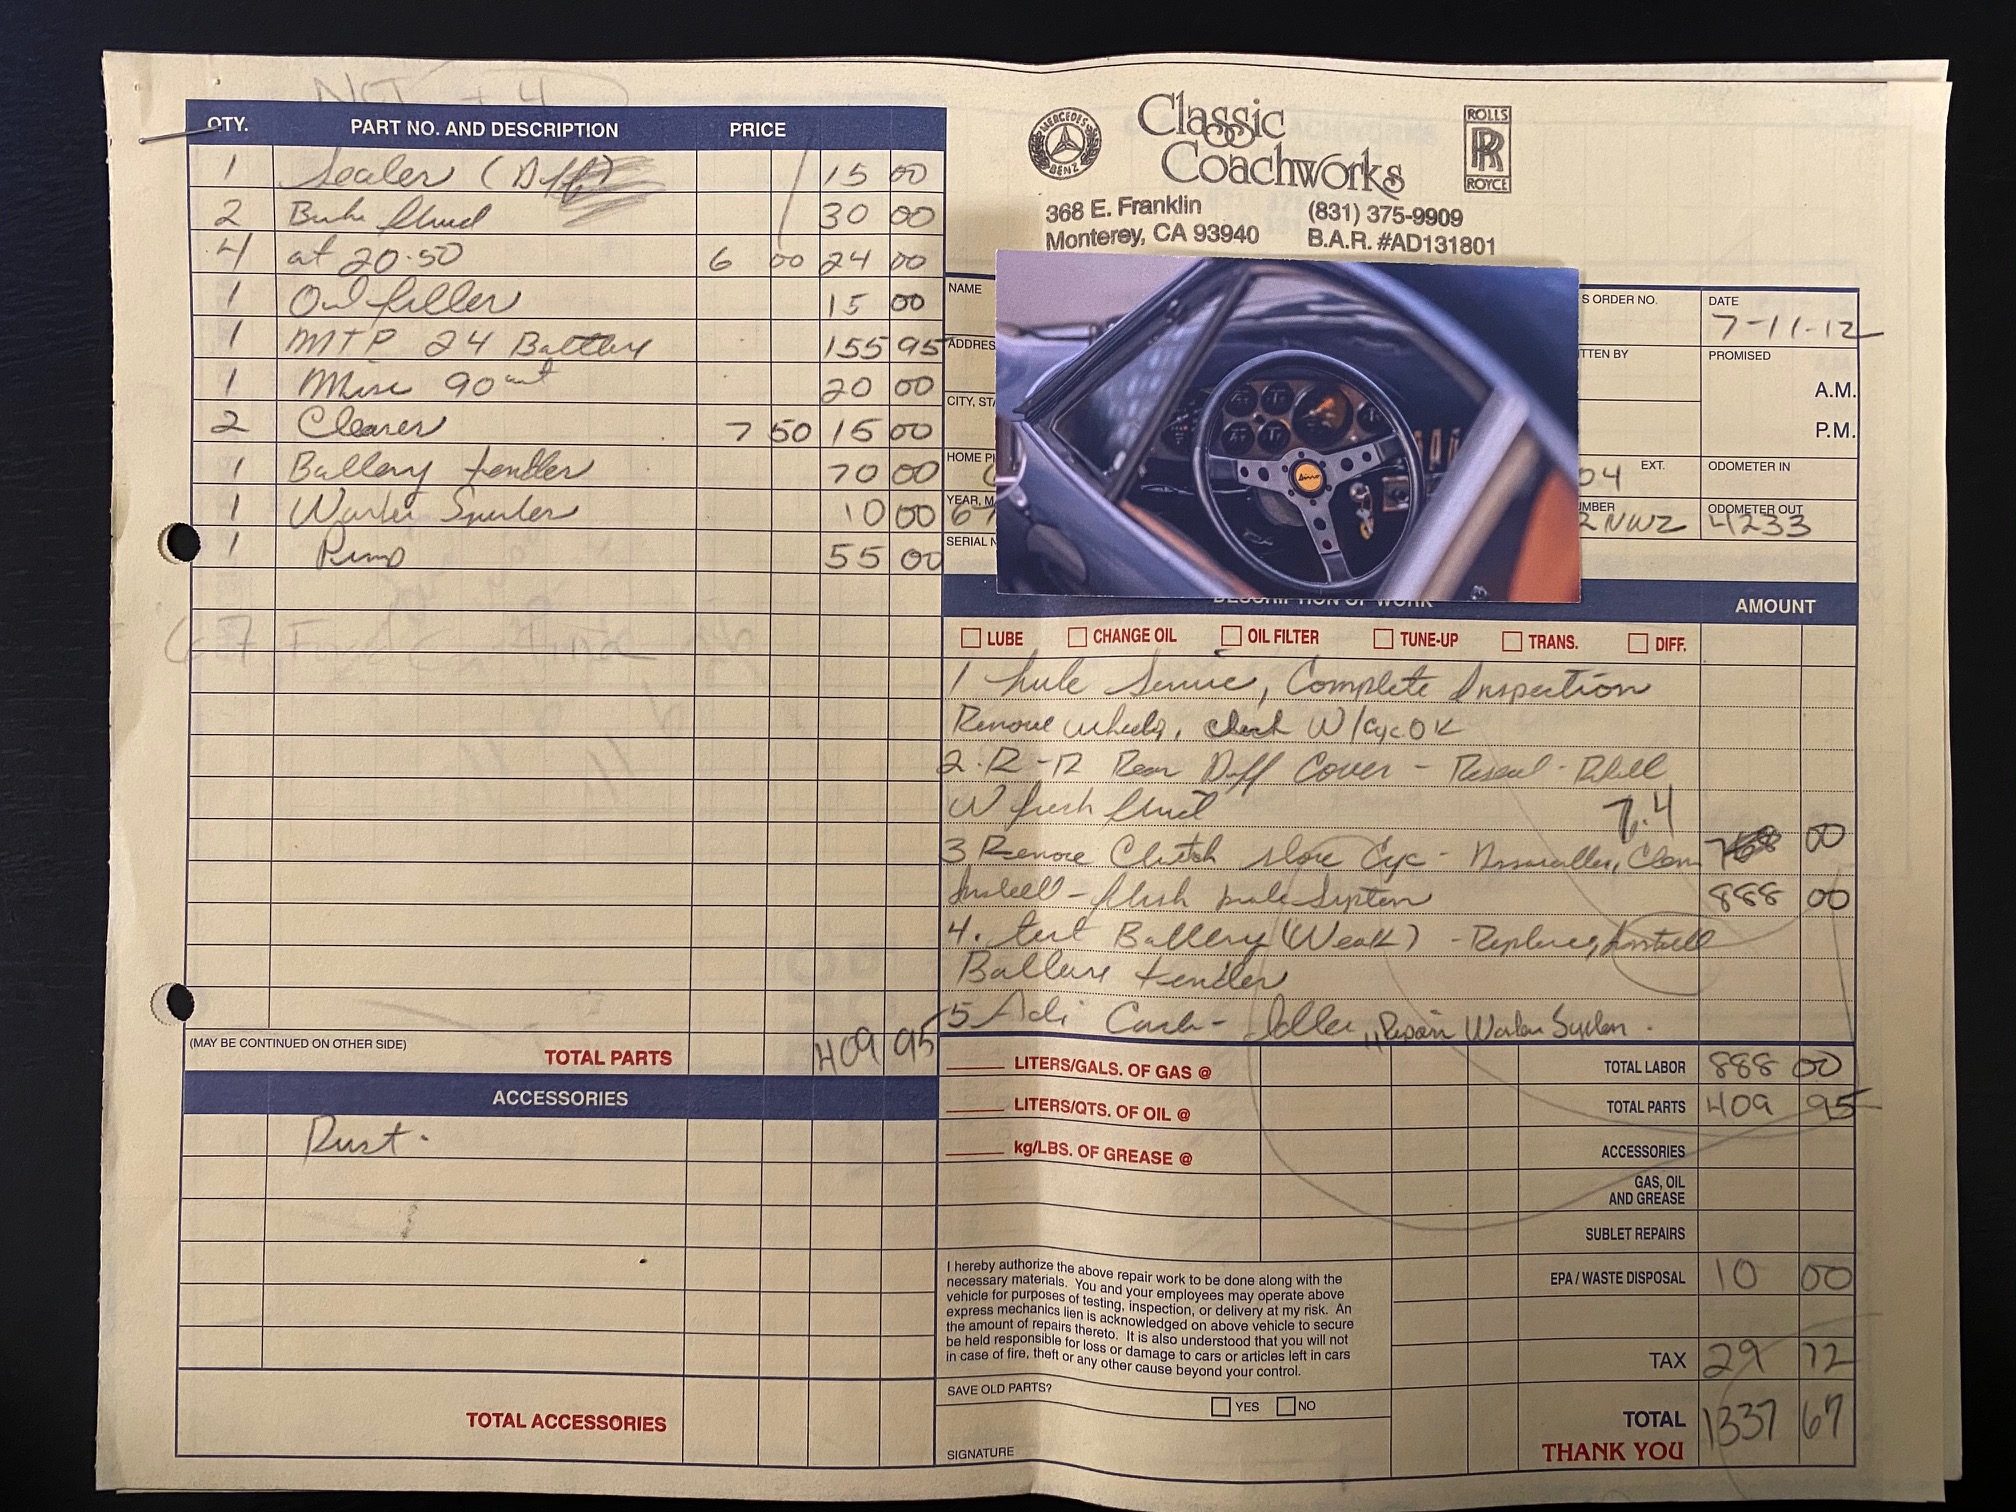 QTY. PART NO. AND DESCRIPTION PRICE
1 Sealer (Diff) 15 00
2 Brake fluid 30 00
4 qt 20-50 6 00 24 00
1 Oil filter 15 00
1 MTP 24 Battery 155 95
1 Misc 90 wt 20 00
2 Cleaner 7 50 15 00
1 Battery tender 70 00
1 Washer 10 00
1 Pump 55 00
(MAY BE CONTINUED ON OTHER SIDE)
TOTAL PARTS 409 95
ACCESSORIES
Rust.
TOTAL ACCESSORIES
MERCEDES BENZ
Classic
Coachworks
ROLLS
RR
ROYCE
368 E. Franklin (831) 375-9909
Monterey, CA 93940 B.A.R. #AD131801
NAME
S ORDER NO.
DATE
7-11-12
ADDRES
TTEN BY
PROMISED
A.M.
CITY, STA
P.M.
HOME P
04
EXT.
ODOMETER IN
YEAR, M
67
MBER
2NWZ
ODOMETER OUT
4233
SERIAL N
Dino
DESCRIPTION OF WORK AMOUNT
LUBE CHANGE OIL OIL FILTER TUNE-UP TRANS. DIFF.
1 Lube Service, Complete Inspection
Remove wheels, check W/Cyc OK
2. R-R Rear Diff Cover - Reseal - Refill
W fresh fluid 7.4
3 Remove Clutch slave Cyc - Clean 768 00
Install - flush brake System 888 00
4. test Battery (Weak) - Replace, Install
Battery tender
5 Adj Carb - Idle, Repair Washer System.
LITERS/GALS. OF GAS @
TOTAL LABOR 888 00
LITERS/QTS. OF OIL @
TOTAL PARTS 409 95
kg/LBS. OF GREASE @
ACCESSORIES
GAS, OIL
AND GREASE
SUBLET REPAIRS
EPA / WASTE DISPOSAL 10 00
TAX 29 72
TOTAL 1337 67
THANK YOU
I hereby authorize the above repair work to be done along with the
necessary materials. You and your employees may operate above
vehicle for purposes of testing, inspection, or delivery at my risk. An
express mechanics lien is acknowledged on above vehicle to secure
the amount of repairs thereto. It is also understood that you will not
be held responsible for loss or damage to cars or articles left in cars
in case of fire, theft or any other cause beyond your control.
SAVE OLD PARTS?
YES NO
SIGNATURE